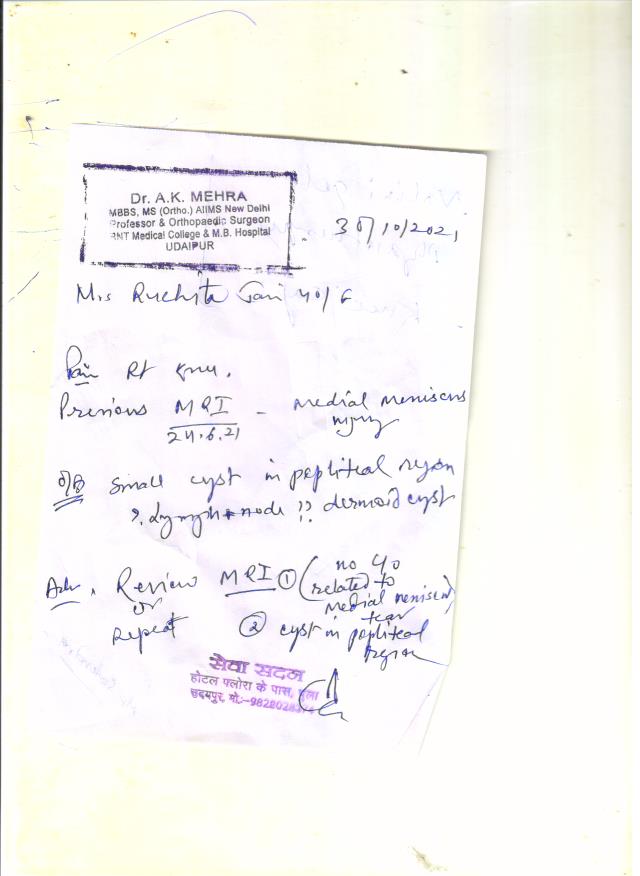 Dr. A.K. MEHRA
MBBS, MS (Ortho.) AIIMS New Delhi
Professor & Orthopaedic Surgeon
RNT Medical College & M.B. Hospital
UDAIPUR
30/10/2021
Mrs Ruchita 40/F
Pain Rt knee.
Previous MRI - medial meniscus
24.6.21 injury
O/E small cyst in popliteal region
? Lymph node ?? dermoid cyst
Adv. Review MRI ① (no c/o
or related to
Medial meniscus
Repeat tear)
② cyst in popliteal
region
सेवा सदन
होटल फ्लोरा के पास,
उदयपुर, मो.:-9828028